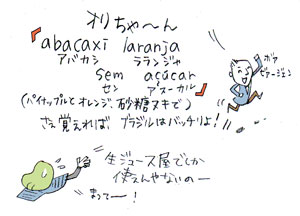 オリちゃ〜ん
『abacaxi laranja
アバカシ ラランジャ
sem açúcar
セン アスーカル』
(パイナップルとオレンジ、砂糖ヌキで)
さえ覚えれば、ブラジルはバッチリよ!
ボア
ビアージェン
生ジュース屋でしか
使えんやないのー
まってー!